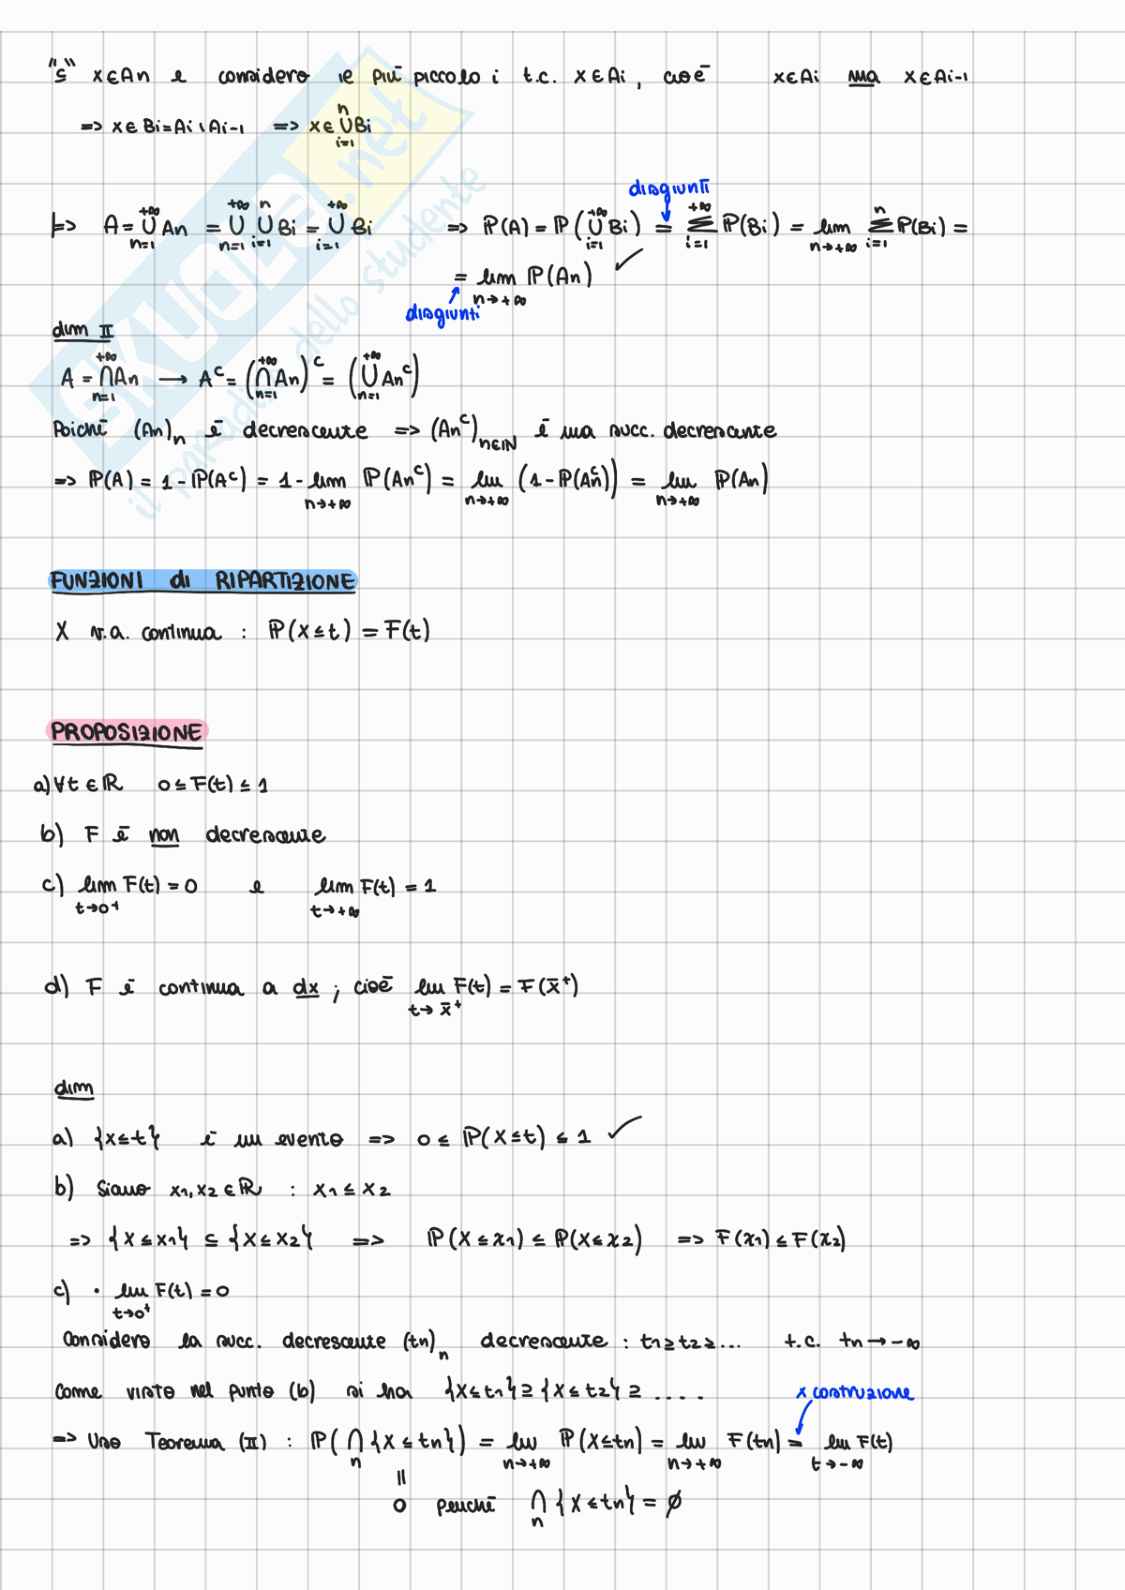 "⊆" x∈An e considero il più piccolo i t.c. x∈Ai, cioè x∈Ai ma x∈Ai-1
=> x∈Bi=Ai\Ai-1 => x∈ ⋃_{i=1}^{n} Bi
disgiunti
|=> A = ⋃_{n=1}^{+∞} An = ⋃_{n=1}^{+∞} ⋃_{i=1}^{n} Bi = ⋃_{i=1}^{+∞} Bi => ℙ(A) = ℙ(⋃_{i=1}^{+∞} Bi) = Σ_{i=1}^{+∞} ℙ(Bi) = lim_{n→+∞} Σ_{i=1}^{n} ℙ(Bi) =
= lim_{n→+∞} ℙ(An) ✓
disgiunti
dim II
A = ⋂_{n=1}^{+∞} An → A^c = (⋂_{n=1}^{+∞} An)^c = (⋃_{n=1}^{+∞} An^c)
Poichè (An)_n è decrescente => (An^c)_{n∈ℕ} è una succ. decrescente
=> ℙ(A) = 1-ℙ(A^c) = 1-lim_{n→+∞} ℙ(An^c) = lim_{n→+∞} (1-ℙ(An^c)) = lim_{n→+∞} ℙ(An)
FUNZIONI di RIPARTIZIONE
X v.a. continua : ℙ(X≤t) = F(t)
PROPOSIZIONE
a) ∀t∈ℝ 0≤F(t)≤1
b) F è non decrescente
c) lim_{t→0+} F(t) = 0 e lim_{t→+∞} F(t) = 1
d) F è continua a dx ; cioè lim_{t→x̄+} F(t) = F(x̄+)
dim
a) {X≤t} è un evento => 0 ≤ ℙ(X≤t) ≤ 1 ✓
b) Siano x1,x2∈ℝ : x1≤x2
=> {X≤x1} ⊆ {X≤x2} => ℙ(X≤x1) ≤ ℙ(X≤x2) => F(x1)≤F(x2)
c) • lim_{t→0+} F(t) = 0
Considero la succ. decrescente (tn)_n decrescente : t1≥t2≥... t.c. tn→-∞
Come visto nel punto (b) si ha {X≤t1}⊇{X≤t2}⊇ ....
x costruzione
=> Uso Teorema (II) : ℙ(⋂_n {X≤tn}) = lim_{n→+∞} ℙ(X≤tn) = lim_{n→+∞} F(tn) = lim_{t→-∞} F(t)
||
0 perchè ⋂_n {X≤tn} = ∅
SKUOLA.net
il paradiso dello studente